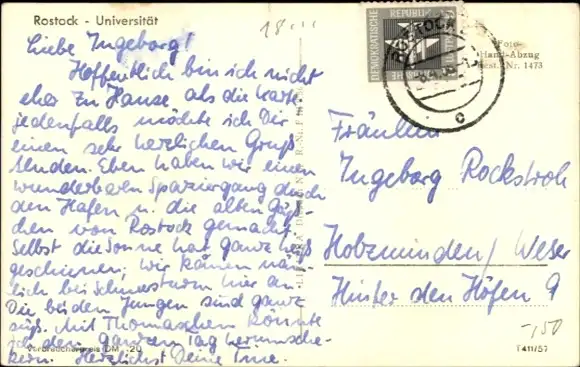 Rostock - Universität
Liebe Ingeborg!
Hoffentlich bin ich nicht
eher zu Hause als die Karte.
jedenfalls möchte ich Dir
einen sehr herzlichen Gruß
senden. Eben haben wir einen
wunderbaren Spaziergang durch
den Hafen u. die alten Gäß-
chen von Rostock gemacht.
Selbst die Sonne hat ganz heiß
geschienen; wir kamen näm-
lich bei Schneesturm hier an.
Die beiden Jungen sind ganz
süß. Mit Thomaschen könnte
ich den ganzen Tag herumscha-
kern. Herzlichst Deine
Verbraucherpreis DM -.20
18
DEMOKRATISCHE
REPUBLIK
ROSTOCK
c
Foto
Hand-Abzug
Best.-Nr. 1473
Fräulein
Ingeborg Rockstroh
Holzminden/Weser
Hinter den Höfen 9
-,50
T411/57